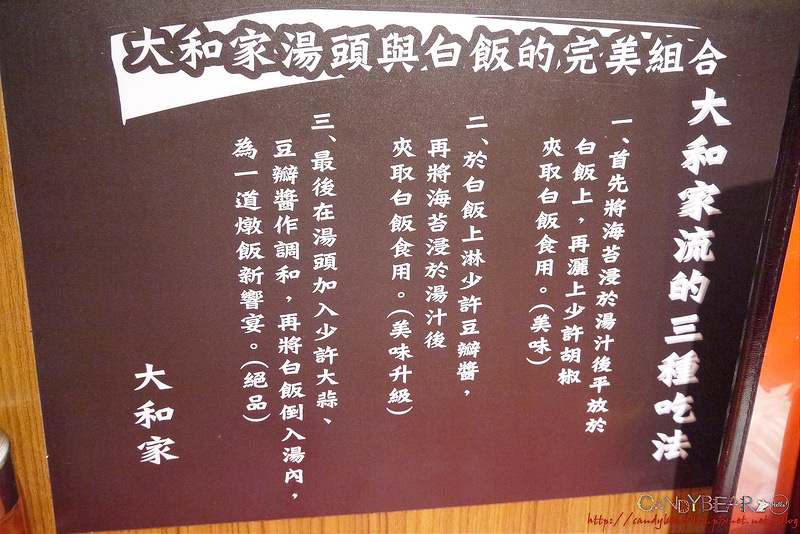 大和家湯頭與白飯的完美組合
大和家流的三種吃法
一、首先將海苔浸於湯汁後平放於
白飯上，再灑上少許胡椒
夾取白飯食用。（美味）
二、於白飯上淋少許豆瓣醬，
再將海苔浸於湯汁後
夾取白飯食用。（美味升級）
三、最後在湯頭加入少許大蒜、
豆瓣醬作調和，再將白飯倒入湯內，
為一道燉飯新響宴。（絕品）
大和家
CANDYBEAR